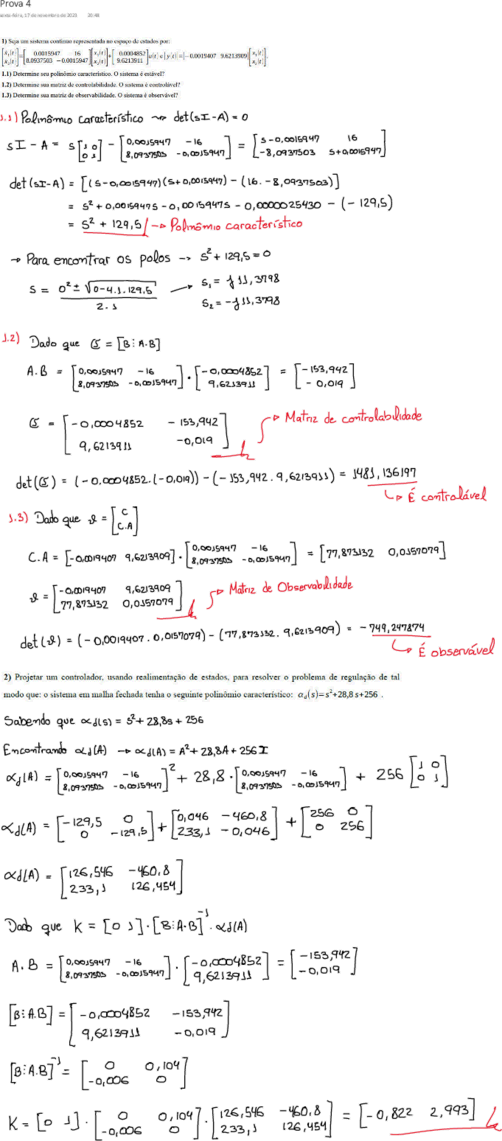 Prova 4
sexta-feira, 17 de novembro de 2023 20:48
1) Seja um sistema contínuo representado no espaço de estados por:
[ẋ₁(t) ẋ₂(t)] = [0.0015947 16 8.0937503 −0.0015947][x₁(t) x₂(t)] + [0.0004852 9.6213911]u(t) e [y(t)] = [−0.0019407 9.6213909][x₁(t) x₂(t)].
1.1) Determine seu polinômio característico. O sistema é estável?
1.2) Determine sua matriz de controlabilidade. O sistema é controlável?
1.3) Determine sua matriz de observabilidade. O sistema é observável?
1.1) Polinômio característico ⇝ det(sI-A) = 0
sI - A = s[1 0 0 1] - [0,0015947 -16 8,0937503 -0,0015947] = [s-0,0015947 16 -8,0937503 s+0,0015947]
det(sI-A) = [(s-0,0015947)(s+0,0015947) - (16 . -8,0937503)]
= s² + 0,0015947s - 0,0015947s - 0,0000025430 - (-129,5)
= s² + 129,5 → Polinômio característico
→ Para encontrar os polos → s² + 129,5 = 0
s = 0² ± √0-4.1.129,5 / 2.1 → s₁ = j11,3798
s₂ = -j11,3798
1.2) Dado que C = [B ⋮ A.B]
A.B = [0,0015947 -16 8,0937503 -0,0015947] . [-0,0004852 9,6213911] = [-153,942 -0,019]
C = [-0,0004852 -153,942 9,6213911 -0,019] → Matriz de controlabilidade
det(C) = (-0,0004852.(-0,019)) - (-153,942 . 9,6213911) = 1481,136197
→ É controlável
1.3) Dado que ϑ = [C C.A]
C.A = [-0,0019407 9,6213909] . [0,0015947 -16 8,0937503 -0,0015947] = [77,873132 0,0157079]
ϑ = [-0,0019407 9,6213909 77,873132 0,0157079] → Matriz de Observabilidade
det(ϑ) = (-0,0019407 . 0,0157079) - (77,873132 . 9,6213909) = -749,247874
→ É observável
2) Projetar um controlador, usando realimentação de estados, para resolver o problema de regulação de tal
modo que: o sistema em malha fechada tenha o seguinte polinômio característico: α_d(s)=s²+28,8 s+256 .
Sabendo que α_d(s) = s² + 28,8s + 256
Encontrando α_d(A) → α_d(A) = A² + 28,8A + 256 I
α_d(A) = [0,0015947 -16 8,0937503 -0,0015947]² + 28,8 . [0,0015947 -16 8,0937503 -0,0015947] + 256 [1 0 0 1]
α_d(A) = [-129,5 0 0 -129,5] + [0,046 -460,8 233,1 -0,046] + [256 0 0 256]
α_d(A) = [126,546 -460,8 233,1 126,454]
Dado que K = [0 1] . [B ⋮ A.B]⁻¹ . α_d(A)
A.B = [0,0015947 -16 8,0937503 -0,0015947] . [-0,0004852 9,6213911] = [-153,942 -0,019]
[B ⋮ A.B] = [-0,0004852 -153,942 9,6213911 -0,019]
[B ⋮ A.B]⁻¹ = [0 0,104 -0,006 0]
K = [0 1] . [0 0,104 -0,006 0] . [126,546 -460,8 233,1 126,454] = [-0,822 2,993]